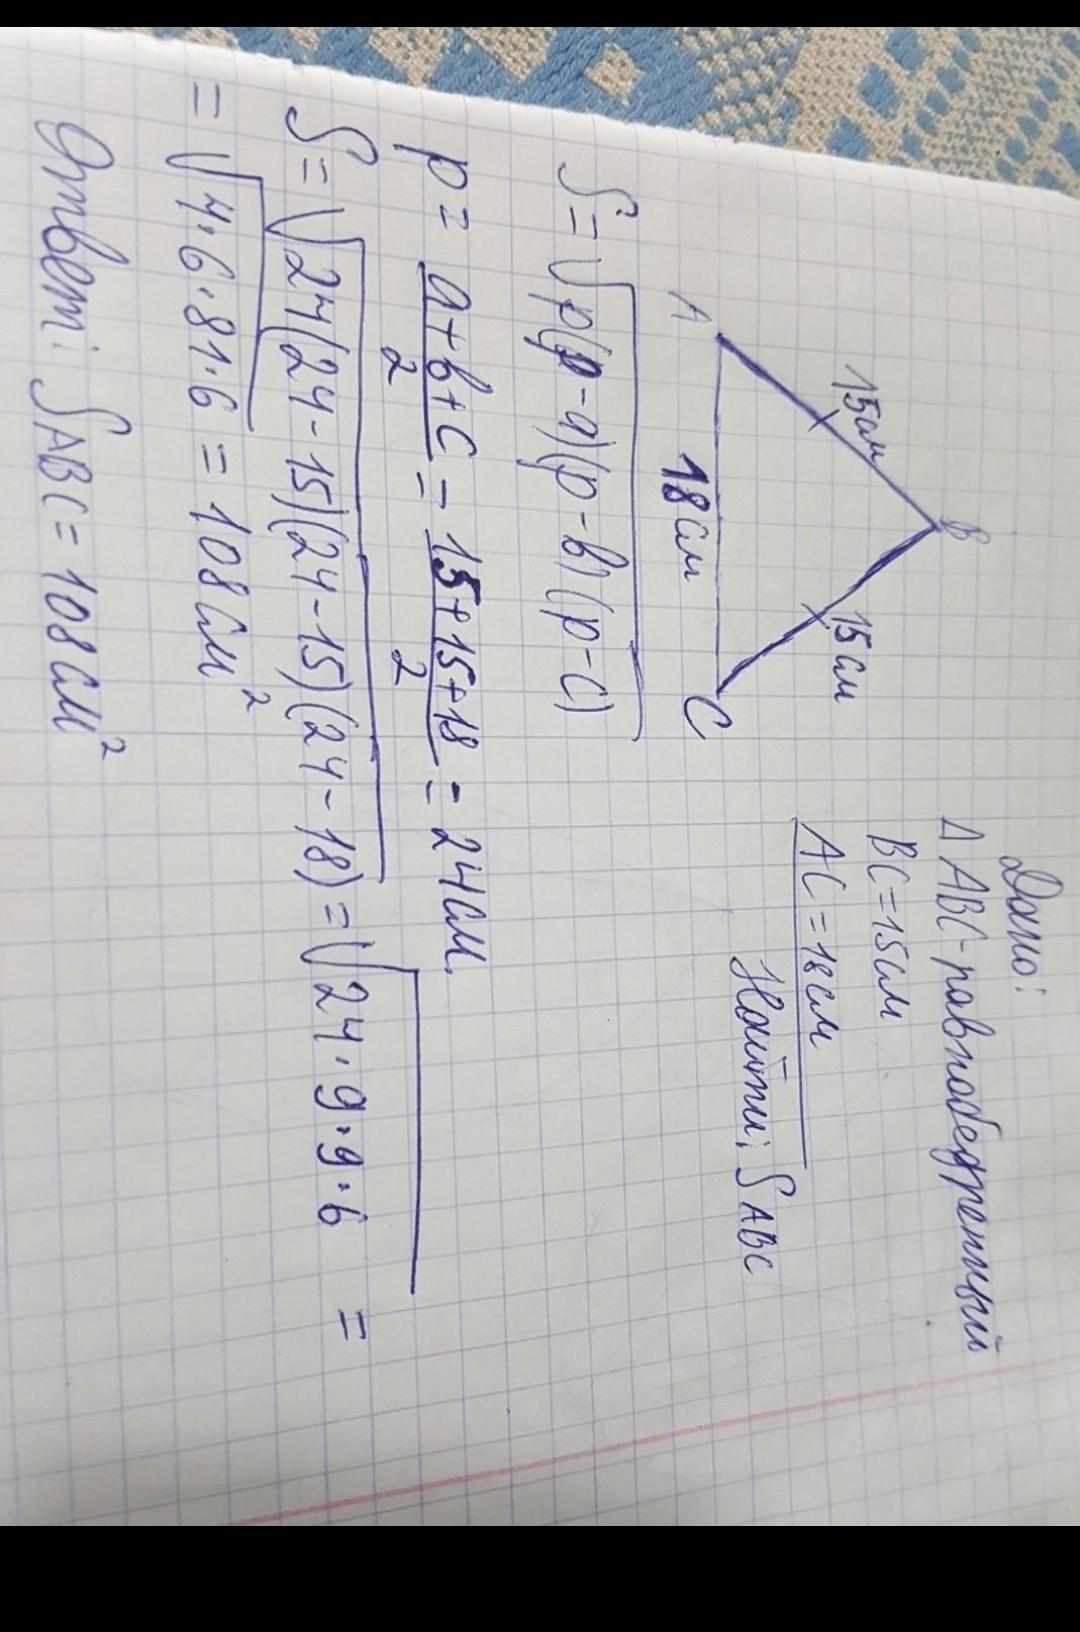 Дано:
Δ ABC - равнобедренный
BC = 15см
AC = 18см
Найти: SABC
B
15см
15см
A
18см
C
S = √p(p-a)(p-b)(p-c)
p = a+b+c/2 = 15+15+18/2 = 24см.
S = √24(24-15)(24-15)(24-18) = √24·9·9·6 =
= √4·6·81·6 = 108см²
Ответ: SABC = 108см²